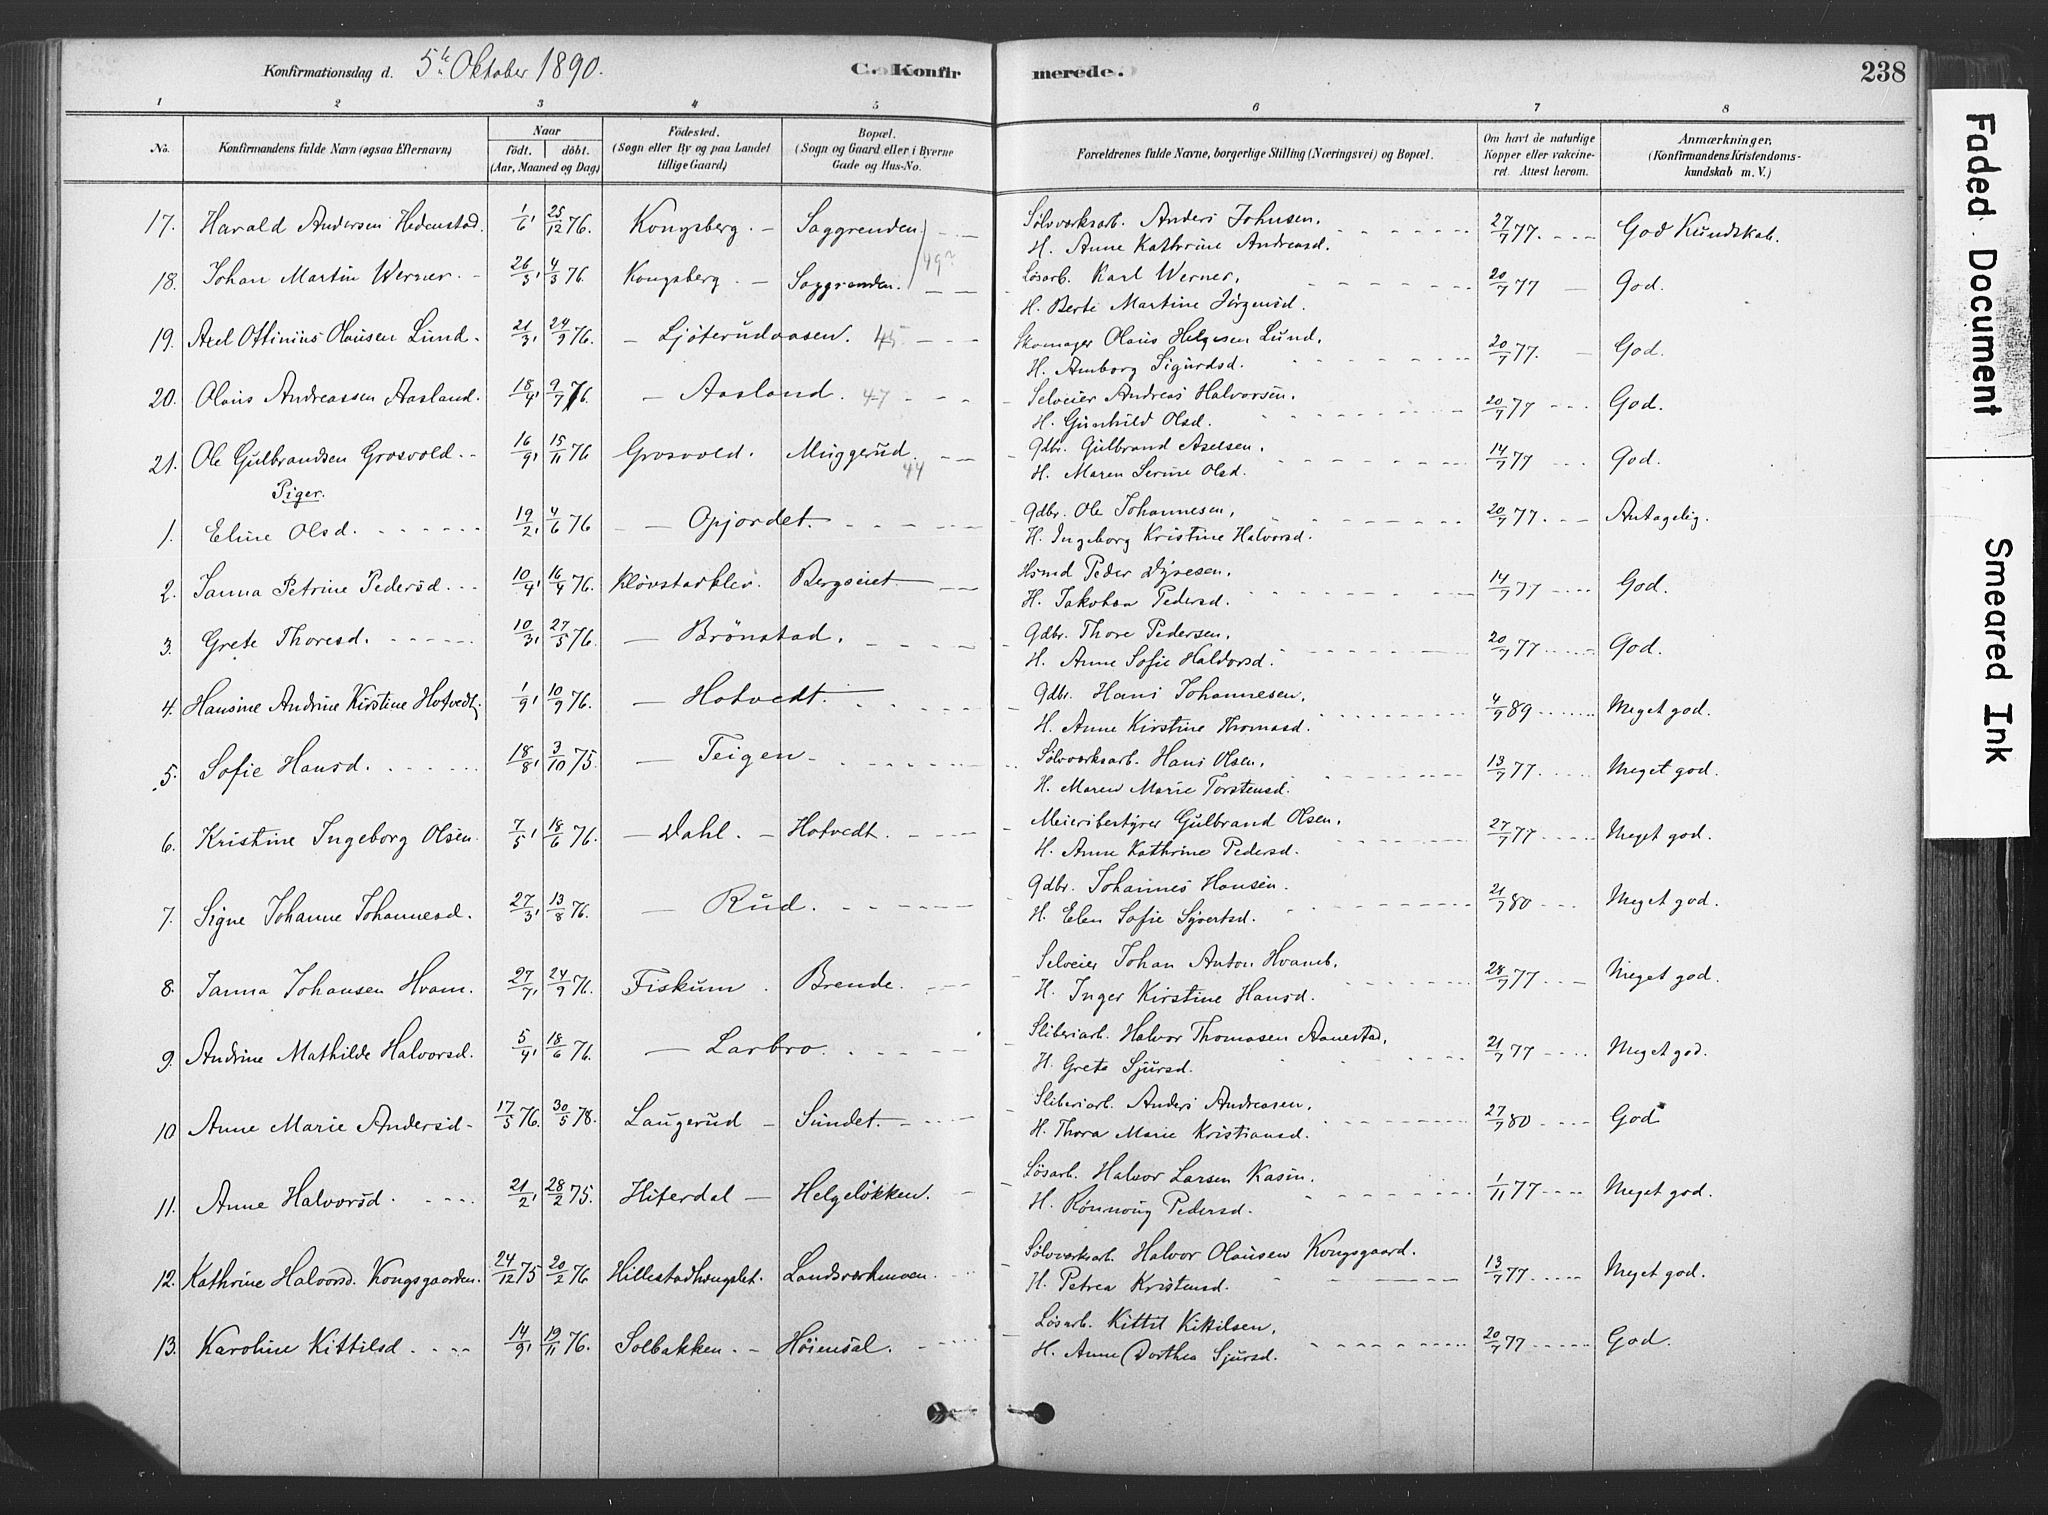 Konfirmationsdag d. 5te Oktober 1890.
C. Konfir merede.
238
1 2 3 4 5 6 7 8
No.
Konfirmandens fulde Navn (ogsaa Efternavn)
Naar
Födt. döbt.
(Aar, Maaned og Dag)
Födested.
(Sogn eller By og paa Landet
tillige Gaard)
Bopæl.
(Sogn og Gaard eller i Byerne
Gade og Hus-No.
Forældrenes fulde Navne, borgerlige Stilling (Næringsvei) og Bopæl.
Om havt de naturlige
Kopper eller vakcine-
ret. Attest herom.
Anmærkninger.
(Konfirmandens Kristendoms-
kundskab m. V.)
17. Harald Andersen Hedenstad. 1/6, 25/12 76. Kongsberg. — Saggrenden Sølvverksarb. Anders Johnsen, 27/7 77. God Kundskab.
H. Anne Kathrine Andreasd.
49
18. Johan Martin Werner. 26/3, 4/3 76. Kongsberg. — Saggrenden. Løsarb. Karl Werner, 20/7 77 — God.
H. Berte Martine Jörgensd.
19. Axel Ottinius Olausen Lund. 21/3, 24/9 76. — Ljöterudaasen. 45 Skomager Olaus Helgesen Lund, 20/7 77. — God.
H. Amborg Sigurdsd.
20. Olaus Andreassen Aasland. 18/4, 9/7 76. — Aasland. 47 Selveier Andreas Halvorsen, 20/7 77 God.
H. Gunhild Olsd.
21. Ole Gulbrandsen Grosvold. 16/9, 15/11 76 Grosvold. Muggerud. 44 Gdbr. Gulbrand Axelsen, 14/7 77 God.
H. Maren Serine Olsd.
Piger.
1. Eline Olsd. 19/2, 4/6 76 — Opjordet Gdbr. Ole Johannesen, 20/7 77. Antagelig.
H. Ingeborg Kristine Halvorsd.
2. Janna Petrine Pedersd. 10/4, 16/4 76. Klövstadklev. Bergseiet Hsmd Peder Dyresen, 14/7 77 God.
H. Jakobea Pedersd.
3. Grete Thoresd. 10/3, 27/5 76. — Brönstad. Gdbr. Thore Pedersen, 20/7 77 God.
H. Anne Sofie Haldorsd.
4. Hansine Andrine Kirstine Hotvedt. 1/9, 10/9 76. — Hotvedt. Gdbr. Hans Johannesen, 4/9 89 Meget god.
H. Anne Kirstine Thomasd.
5. Sofie Hansd. 18/8, 3/10 75. — Teigen Sølvverksarb. Hans Olsen, 13/7 77 Meget god.
H. Maren Marie Torstensd.
6. Kristine Ingeborg Olsen. 7/5, 18/6 76. — Dahl. — Hotvedt. Meieribestyrer Gulbrand Olsen, 27/7 77 Meget god.
H. Anne Kathrine Pedersd.
7. Signe Johanne Johannesd. 27/3, 13/8 76. — Rud. Gdbr. Johannes Hansen. 21/7 80 Meget god.
H. Elen Sofie Syvertsd.
8. Janna Johansen Hvam. 27/7, 24/9 76. Fiskum. Brende. Selveier Johan Anton Hvamb. 28/7 77 Meget god.
H. Inger Kirstine Hansd.
9. Andrine Mathilde Halvorsd. 5/4, 18/6 76. — Larbro. Sliberiarb. Halvor Thomasen Aanestad, 21/7 77 Meget god.
H. Grete Sjursd.
10 Anne Marie Andersd 17/5 76. 30/5 78. Laugerud — Sundet. Sliberiarb. Anders Andreasen, 27/7 80 God
H. Thora Marie Kristiansd.
11. Anne Halvorsd. 21/2, 28/2 75. Hiterdal — Helgelökken. Løsarb. Halvor Larsen Kasin. 1/11 77 Meget god.
H. Rönnoug Pedersd.
12. Kathrine Halvorsd. Kongsgaarden. 24/12 75 20/2 76 Hillestadhengslet. Landsverkmoen. Sølvverksarb. Halvor Olausen Kongsgaard. 13/7 77 Meget god.
H. Petrea Kristensd.
13. Karoline Kittilsd. 14/9, 19/11 76. Solbakken. — Höiensal. Løsarb. Kittil Kittilsen, 20/7 77 God.
H. Anne Dorthea Sjursd.
Faded Document
Smeared Ink